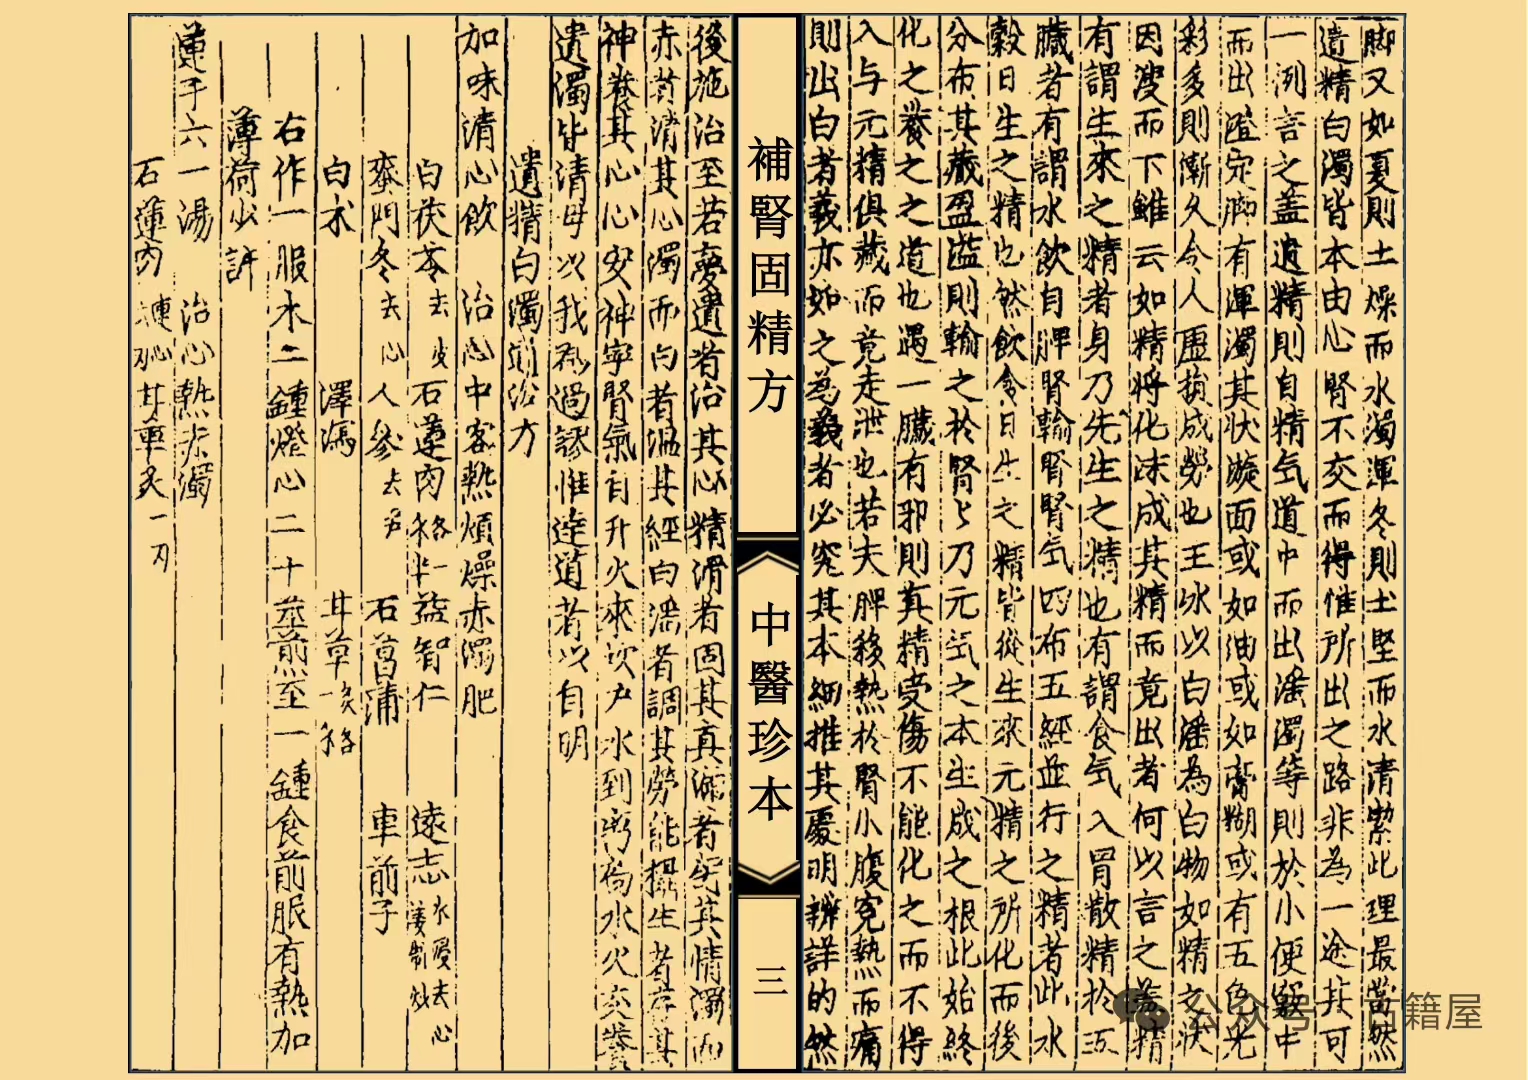 脚又如夏則土燥而水濁渾冬則土堅而水清縈此理最當然
遺精白濁皆本由心腎不交而得惟所出之路非為一途其可
一列言之盖遺精則自精气道中而出濁等則於小便竅中
而出證宛有渾濁其状漩面或如油或如膏糊或有五色光
彩多則漸久令人虛損成勞也王冰以白為白物如精之状
因溲而下雖云如精將化成其精而竟出者何以言之精
有謂生來之精者身乃先生之精也有謂食气入胃散精於五
臓者有謂水飲自脾腎輸腎腎气四布五經並行之精者此水
穀日生之精也然飲食日生之精皆從生來元精之所化而後
分布其藏盈溢則輸之於腎乃元气之本生成之根此始終
化之養之之道也遇一臓有邪則真精受傷不能化之而不得
入与元精俱藏而竟走泄也若夫脾移熱於腎小腹寃熱而痛
則出白者義亦如之為義者必究其本細推其處明辨詳的然
補腎固精方
中醫珍本
三
後施治至若夢遺者治其心精滑者固其真者其情濁而
赤者清其心濁而白者温其經白者調其勞能攝生者其
神養其心心安神寧腎氣自升火來水到火交養
遺濁皆清毋以我為過謬惟達道者以自明
遺精白濁治方
加味清心飲 治心中客熱煩燥赤濁肥
白茯苓去皮 石蓮肉 益智仁 遠志水浸去心
麥門冬去心 人參去 石菖蒲 車前子
白朮 澤瀉 甘草
右作一服水二鍾燈心二十莖煎至一鍾食前服有熱加
薄荷少許
蓮子六一湯 治心熱赤濁
石蓮肉連心 甘草炙一
公众号 古籍屋